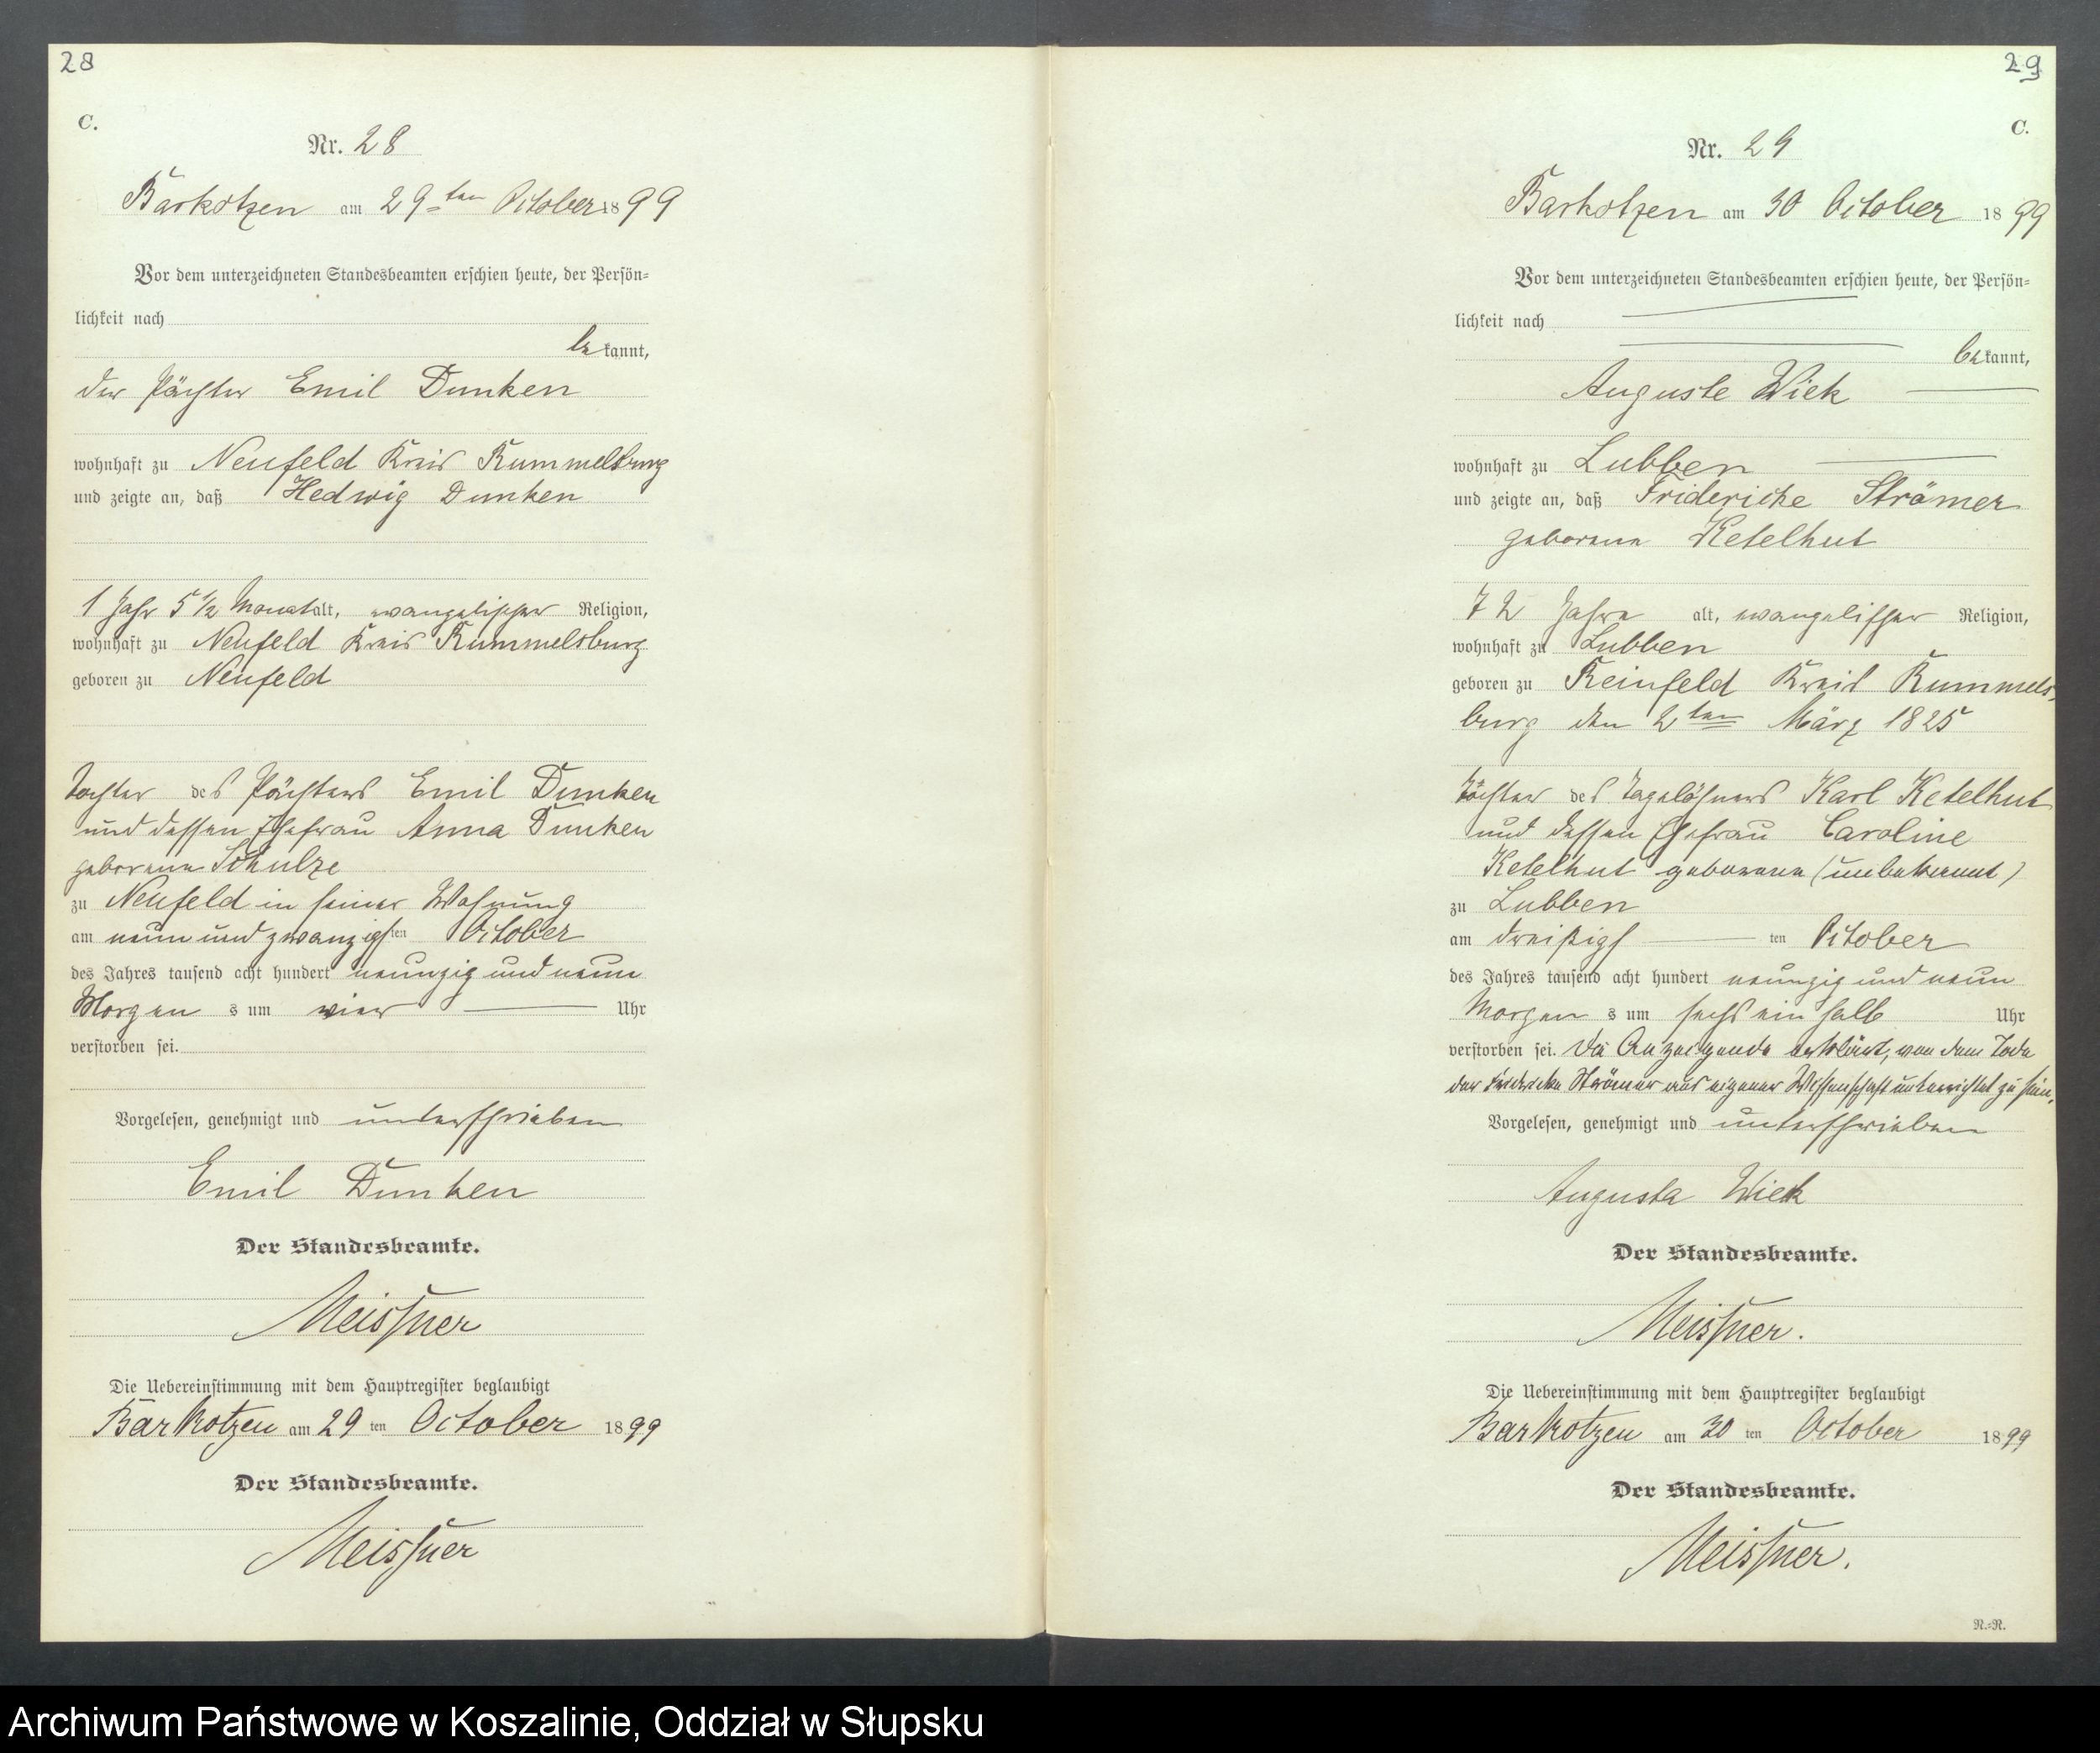 28
C.
Nr. 28
Barkotzen am 29ten October 1899
Vor dem unterzeichneten Standesbeamten erschien heute, der Persön-
lichkeit nach
bekannt,
der Pächter Emil Dunken
wohnhaft zu Neufeld Kreis Rummelsburg
und zeigte an, daß Hedwig Dunken
1 Jahr 5 1/2 Monat alt, evangelischer Religion,
wohnhaft zu Neufeld Kreis Rummelsburg
geboren zu Neufeld
Tochter des Pächters Emil Dunken
und dessen Ehefrau Anna Dunken
geborene Schulze
zu Neufeld in seiner Wohnung
am neun und zwanzigsten October
des Jahres tausend acht hundert neunzig und neun
Morgens um vier Uhr
verstorben sei.
Vorgelesen, genehmigt und unterschrieben
Emil Dunken
Der Standesbeamte.
Meissner
Die Uebereinstimmung mit dem Hauptregister beglaubigt
Barkotzen am 29ten October 1899
Der Standesbeamte.
Meissner
29
C.
Nr. 29
Barkotzen am 30 October 1899
Vor dem unterzeichneten Standesbeamten erschien heute, der Persön-
lichkeit nach
bekannt,
Auguste Wiek
wohnhaft zu Lubben
und zeigte an, daß Fridericke Strömer
geborene Ketelhut
72 Jahre alt, evangelischer Religion,
wohnhaft zu Lubben
geboren zu Reinfeld Kreis Rummels-
burg den 2ten März 1825
Tochter des Tagelöhners Karl Ketelhut
und dessen Ehefrau Caroline
Ketelhut geborene (unbekannt)
zu Lubben
am dreißigsten October
des Jahres tausend acht hundert neunzig und neun
Morgens um sechs ein halb Uhr
verstorben sei. Die Anzeigende erklärt, von dem Tode
der Fridericke Strömer aus eigener Wissenschaft unterrichtet zu sein.
Vorgelesen, genehmigt und unterschrieben
Augusta Wiek
Der Standesbeamte.
Meissner.
Die Uebereinstimmung mit dem Hauptregister beglaubigt
Barkotzen am 30ten October 1899
Der Standesbeamte.
Meissner.
R.=R.
Archiwum Państwowe w Koszalinie, Oddział w Słupsku